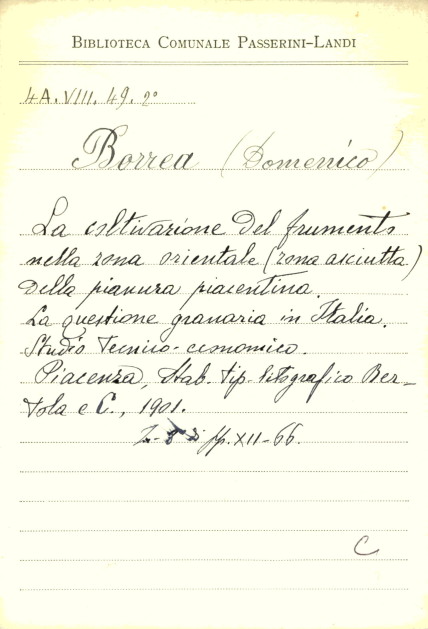 BIBLIOTECA COMUNALE PASSERINI-LANDI
4A. VIII. 49. 2°
Borrea (Domenico)
La coltivazione del frumento
nella zona orientale (zona asciutta)
della pianura piacentina.
La questione granaria in Italia.
Studio tecnico-economico.
Piacenza, Stab. tip. litografico Ber-
tola e C., 1901.
pp. XII-66.
C